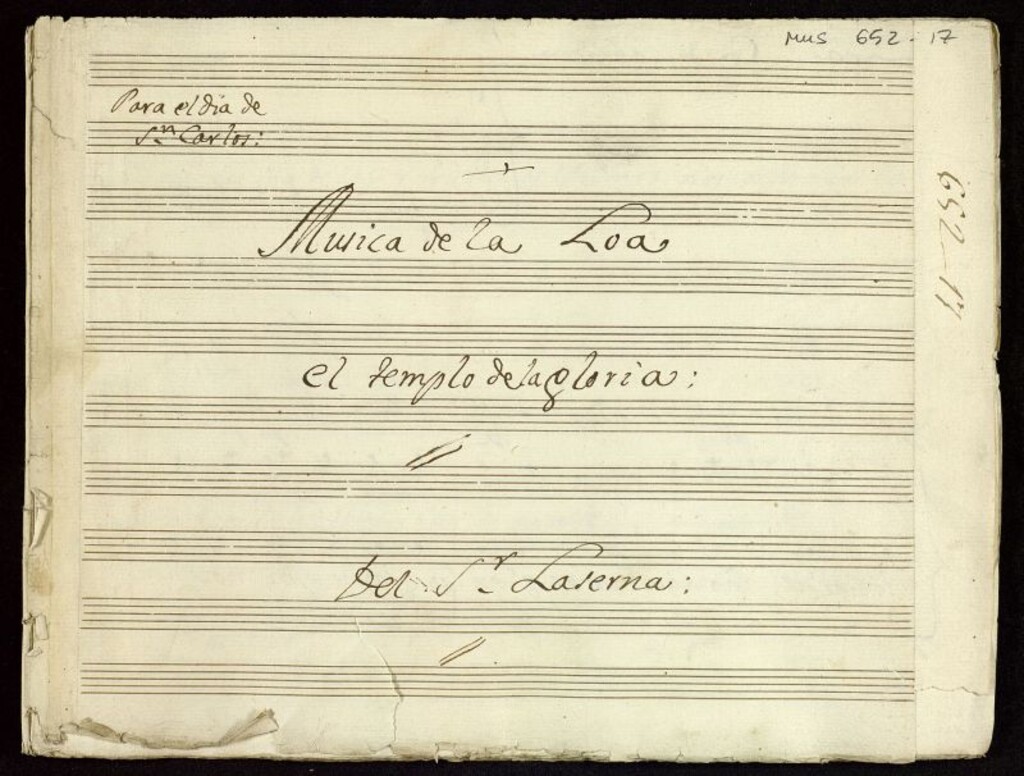 Mus 652-17
Para el dia de
Sn Carlos:
Musica de la Loa
el templo de la gloria:
Del Sr Laserna:
652-17